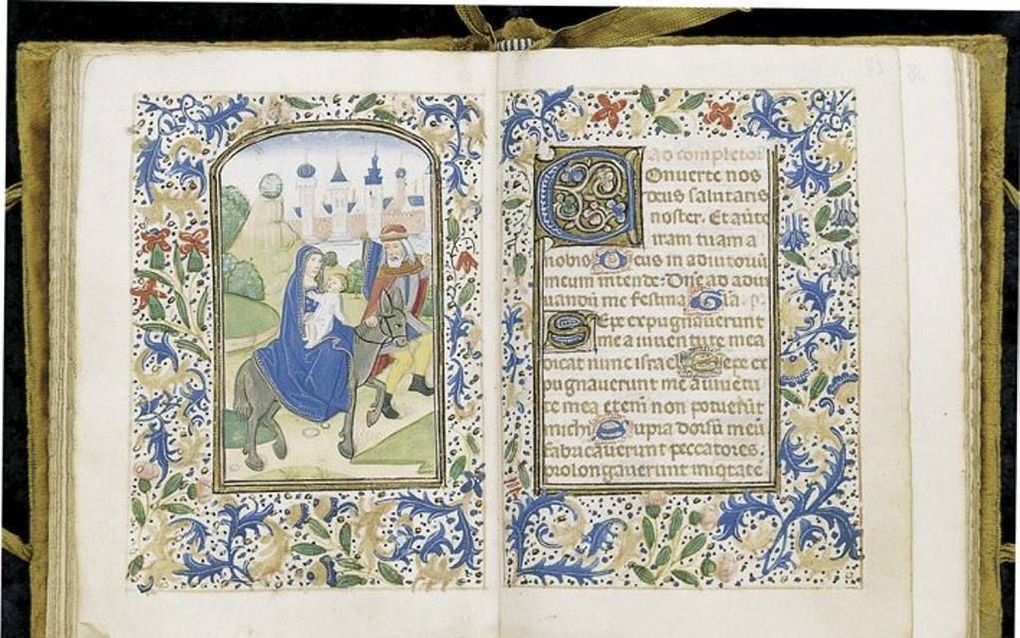 Ad completor
Conuerte nos
deus salutaris
noster. Et aũte
iram tuam a
nobis Deus in adiutoriũ
meum intende: Dñe ad adiu
uandũ me festina Gla. p.
Sepe expugnauerunt
me a iuuentute mea
dicat nunc israel Sepe ex
pugnauerunt me a iuuẽtu
te mea etem̃ non potuerũt
michi Supra dorsũ meũ
fabricauerunt peccatores.
prolongauerunt iniqtatẽ